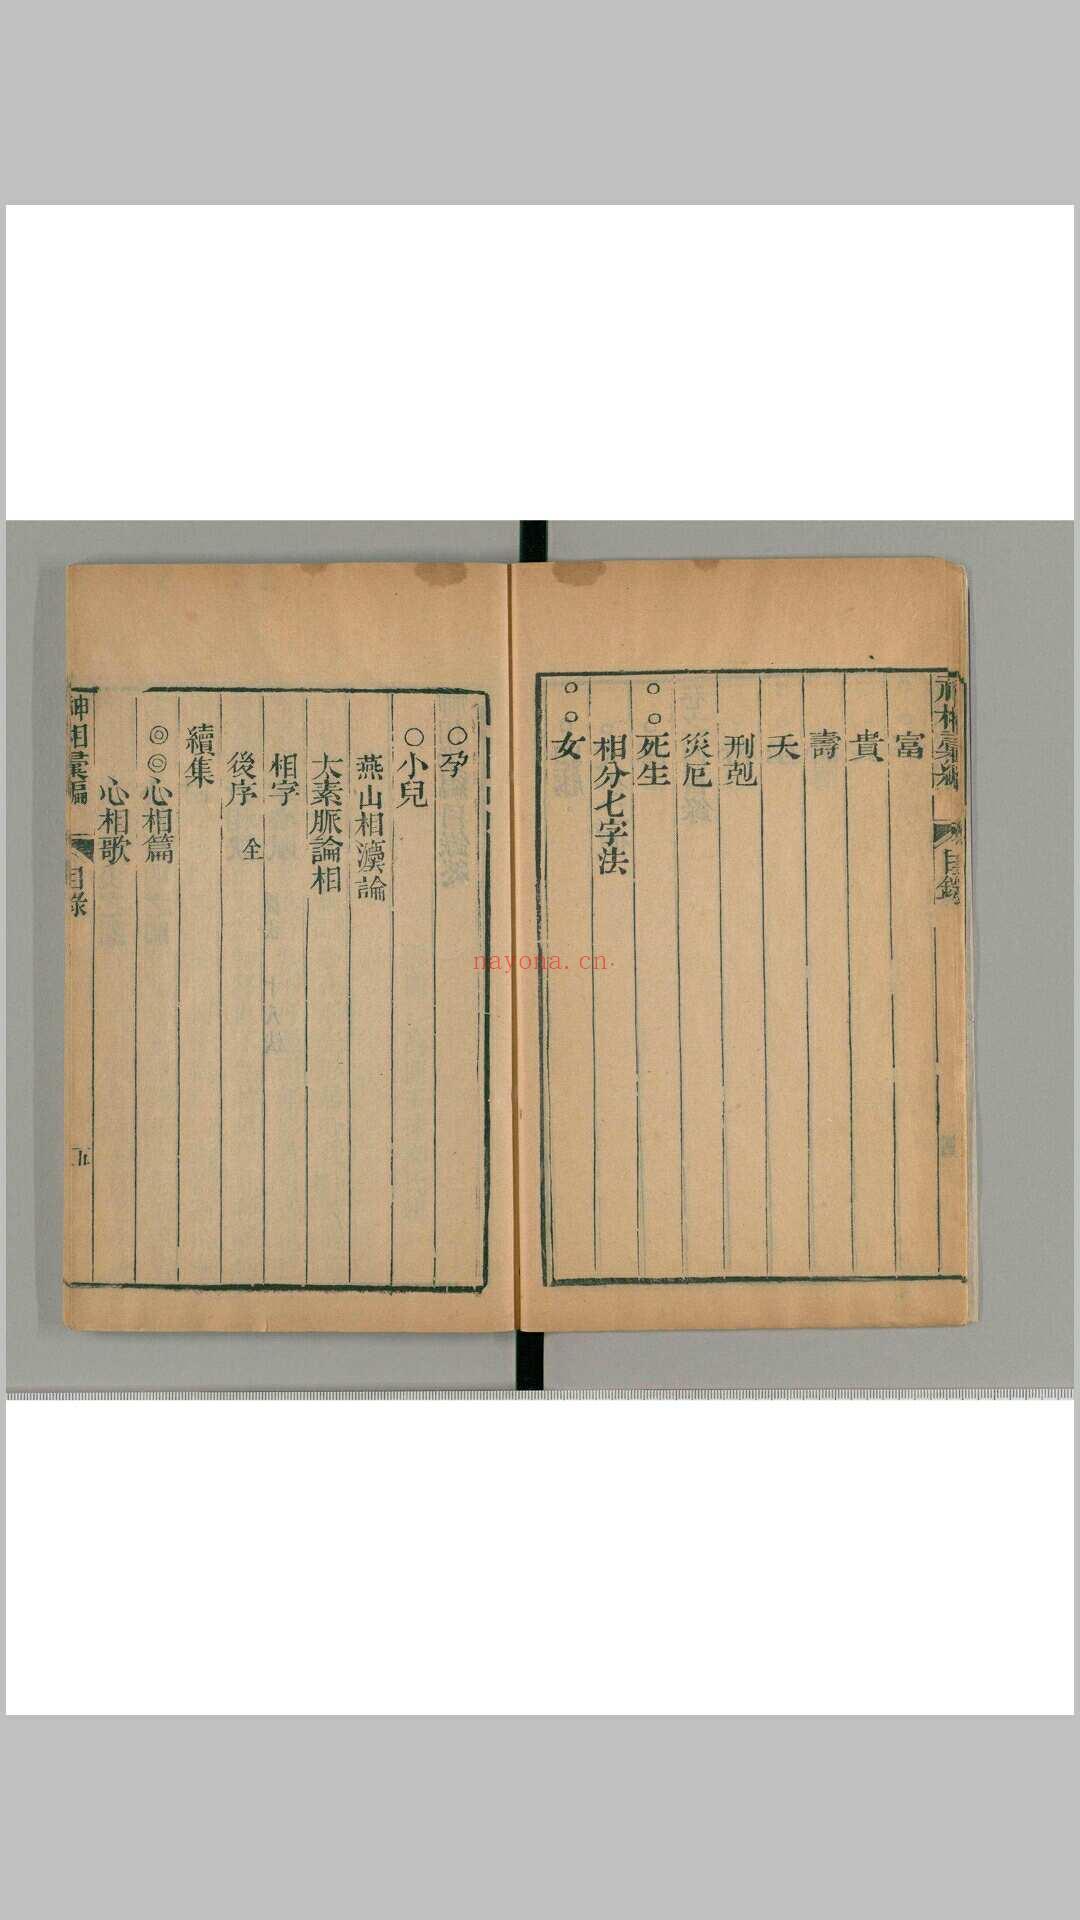 神相彙編
目錄
富
貴
壽
夭
刑剋
災厄
○○死生
相分七字法
○○女
○孕
○小兒
燕山相瀆論
太素脈論相
相字
後序 全
續集
◎◎心相篇
心相歌
神相彙編
目錄
五
nayona.cn